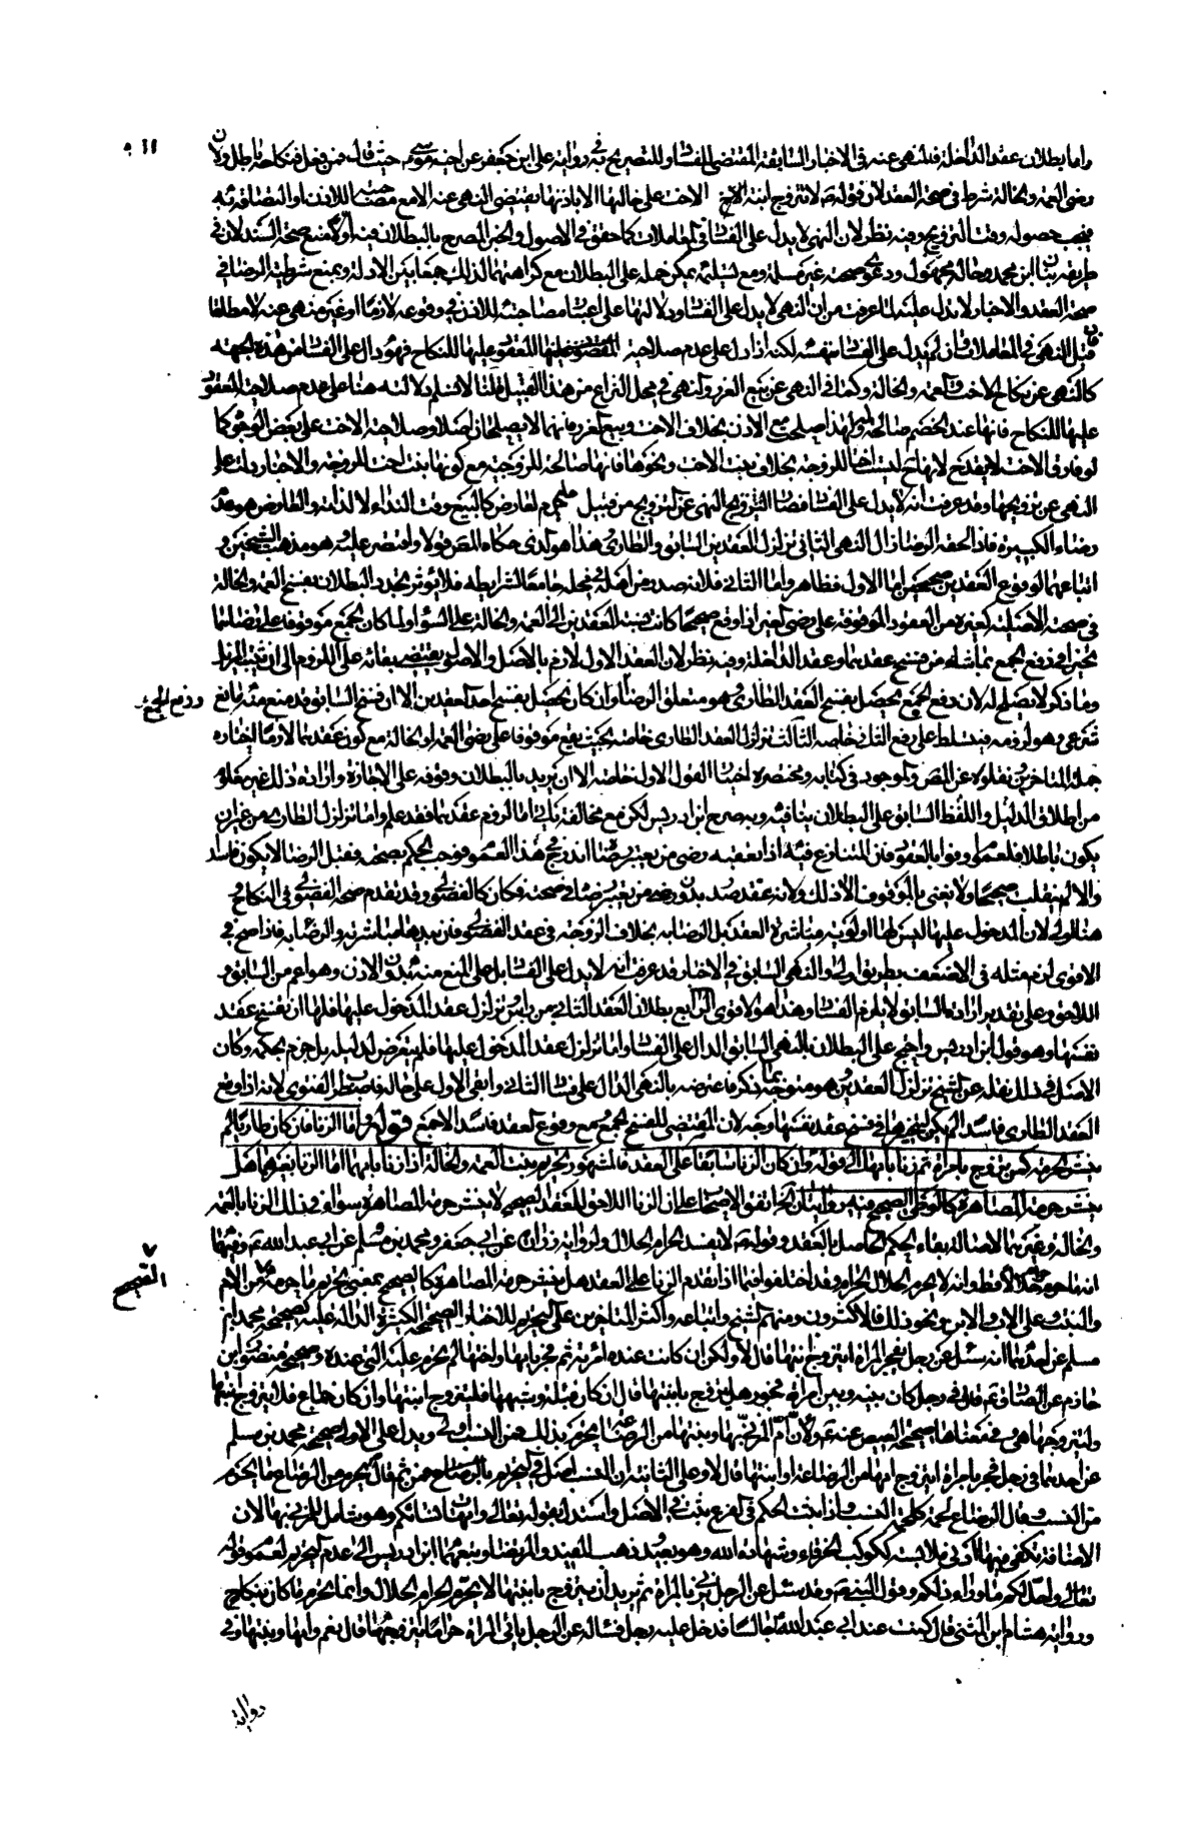 واما بطلان عقد الداخلة فللنهي عنه في الاخبار السابقة المقتضي للفساد وللتصريح به في رواية علي ابن جعفر عن اخيه موسى ع حيث قال فمن فعل فنكاحه باطل ولان
رضى العمة والخالة شرط في صحة العقد لان قوله ص لا تتزوج ابنة الاخ الاخت على خالتها الا باذنها يقتضي النهي عنه الا مع مصاحبة للاذن او التصاقه به
فيجب حصوله وقت التزويج وفيه نظر لان النهي لا يدل على الفساد في المعاملات كما حقق في الاصول والخبر المصرح بالبطلان فيه اولا منع صحة السند لان في
طريقه بنان ابن محمد وحاله مجهول ودعوى صحته غير مسلمة ومع تسليمه يمكن حمله على البطلان مع كراهتهما لذلك جمعا بين الادلة ويمنع شرطية الرضا في
صحة العقد والاخبار لا تدل عليه لما عرفت من ان النهي لا يدل على الفساد ودلالتها على اعتبار مصاحبته للاذن في وقوعه لازما او غير منهي عنه لا مطلقا
قيل النهي في المعاملات وان لم يدل على الفساد بنفسه لكنه اذا دل على عدم صلاحية المعقود عليها للنكاح فهو دال على الفساد من هذه الجهة
كالنهي عن نكاح الاخت والعمة والخالة وكما في النهي عن بيع الغرر والنهي في محل النزاع من هذا القبيل قلنا لا نسلم دلالته هنا على عدم صلاحية المعقود
عليها للنكاح فانها عند الخصم صالحة له ولهذا صلحت مع الاذن بخلاف الاخت وبيع الغرر فانهما لا يصلحان اصلا وصلاحية الاخت على بعض الوجوه كما
لو فارق الاخت لا يقدح لانها ح ليست اختا للزوجة بخلاف بنت الاخت ونحوها فانها صالحة للزوجية مع كونها بنت اخت الزوجة والاخبار دلت على
النهي عن تزويجها وقد عرفت انه لا يدل على الفساد فصار النهي عن التزويج من قبيل ما حرم لعارض كالبيع وقت النداء لا لذاته والعارض هو عدم
رضاء الكبيرة فاذا لحقه الرضا زال النهي الثاني تزلزل العقدين السابق والطاري وهذا هو الذي حكاه المص قولا واقتصر عليه وهو مذهب الشيخين و
اتباعهما لوقوع العقدين صحيحين اما الاول فظاهر واما الثاني فلانه صدر من اهله في محله جامعا لشرايطه فلا يؤثر تجدد البطلان بفسخ العمة والخالة
في صحته الاصلية كغيره من العقود الموقوفة على رضى الغير اذا وقع صحيحا كانت نسبة العقدين الى العمة والخالة على السواء ولما كان الجمع موقوفا على رضاهما
تخيرا في رفع الجمع بما شاءا من فسخ عقدهما وعقد الداخلة وفيه نظر لان العقد الاول لازم بالاصل والاصل يقتضي بقائه على اللزوم الى ان يثبت المزيل
وما ذكر لا يصلح له لان رفع الجمع يحصل بفسخ العقد الطاري وهو متعلق الرضا وان كان يحصل بفسخ احد العقدين الا ان فسخ السابق قد منع منه مانع
ورفع الجمع
شرعي وهو لزومه فيتسلط على رفع الثاني خاصة الثالث تزلزل العقد الطاري خاصة بحيث يقع موقوفا على رضى العمة والخالة مع كون عقدهما لازما اختاره
جملة المتاخرين ونقلوه عن المص والموجود في كتابه ومختصره اختيار القول الاول خاصة الا ان يريد بالبطلان وقوفه على الاجازة وارادة ذلك غير معلوم
من اطلاق الدليل واللفظ السابق على البطلان ينافيه وبه صرح ابن ادريس لكن مع مخالفة تاتي اما لزوم عقدهما فقد علم واما تزلزل الطاري من غير ان
يكون باطلا فلعموم اوفوا بالعقود فان المتنازع فيه اذا تعقبه رضى من يعتبر رضاه اندرج في هذا العموم فوجب الحكم بصحته فقبل الرضا لا يكون فاسدا
والا لم ينقلب صحيحا ولا نعني بالموقوف الا ذلك ولانه عقد صدر بدون رضى من يعتبر رضاه في صحته فكان كالفضولي وقد تقدم صحة الفضولي في النكاح
هنا اولى لان المدخول عليها ليس لها اولوية مباشرة العقد بل الرضا به بخلاف الزوجة في عقد الفضولي فان بيدها مباشرته والرضا به فاذا صح في
الاقوى لزم مثله في الاضعف بطريق اولى والنهي السابق في الاخبار قد عرفت انه لا يدل على الفساد بل على المنع منه بدون الاذن وهو اعم من السابق و
اللاحق وعلى تقدير ارادة السابق لا يلزم الفساد وهذا هو الاقوى الرابع بطلان العقد الثاني من راس وتزلزل عقد المدخول عليها فلها ان تفسخ عقد
نفسها وهو قول ابن ادريس واحتج على البطلان بالنهي السابق الدال على الفساد واما تزلزل عقد المدخول عليها فلم يتعرض لدليله بل جزم بحكمه وكان
الاصل في ذلك نقله عن الشيخ تزلزل العقدين وهو متوجه بما ذكر فاعترضه بالنهي الدال على فساد الثاني وابقى الاول على حاله فاضطر الفتوى لانه اذا وقع
العقد الطاري فاسدا لم يكن لتخييرها في فسخ عقد نفسها وجه لان المقتضي للفسخ الجمع ومع وقوع العقد فاسدا لا جمع قوله واما الزنا فان كان طاريا لم
ينشر الحرمة كمن تزوج بامراة ثم زنا بامها الى قوله وان كان الزنا سابقا على العقد فالمشهور تحريم بنت العمة والخالة اذا زنا بامهما اما الزنا بغيرهما هل
ينشر حرمة المصاهرة كالوطي الصحيح فيه روايتان الخ اتفق الاصحاب على ان الزنا اللاحق للعقد الصحيح لا ينشر حرمة المصاهرة سواء في ذلك الزنا بالعمة
والخالة وغيرهما لاصالة بقاء الحكم الحاصل بالعقد وقوله ص لا يفسد الحرام الحلال ولرواية زرارة عن ابي جعفر ومحمد بن مسلم عن ابي عبد الله ع وفيها
انه ما حرم حرام حلالا قط وانه لا يحرم الحلال الحرام وقد اختلفوا فيما اذا تقدم الزنا على العقد هل ينشر حرمة المصاهرة كالصحيح بمعنى تحريم ما حرمه من الام
الصحيح
والبنت وعلى الاب والابن ونحو ذلك فالاكثرون ومنهم الشيخ واتباعه واكثر المتاخرين على التحريم للاخبار الصحيحة الكثيرة الدالة عليه كصحيحة محمد ابن
مسلم عن احدهما انه سئل عن رجل يفجر بالمراة ايتزوج ابنتها قال لا ولكن ان كانت عنده امراة ثم فجر بامها او اختها لم تحرم عليه التي عنده وصحيحة منصور ابن
حازم عن الصادق ع قال في رجل كان بينه وبين امراة فجور هل يتزوج بابنتها قال ان كان قبلة وشبهها فليتزوج ابنتها وان كان جماع فلا يتزوج ابنتها
وليتزوجها هي وفي معناها صحيحة العيص عنه ع ولان ام المزني بها وبنتها من الرضاع يحرم كذلك فمن النسب اولى ويدل على الاولى صحيحة محمد بن مسلم
عن احدهما في رجل فجر بامراة ايتزوج امها من الرضاعة او ابنتها قال لا وعلى الثانية ان النسب اصل في التحريم بالرضاع ومن ثم قال يحرم من الرضاع ما يحرم
من النسب وقال الرضاع لحمة كلحمة النسب واذا ثبت الحكم في الفرع يثبت في الاصل واستدل بقوله تعالى وامهات نسائكم وهو شامل للمزني بها لان
الاضافة تكفي فيها ادنى ملابسة ككوكب الخرقاء وشهادة الله وهو بعيد وذهب المفيد والمرتضى وتبعهما ابن ادريس الى عدم التحريم لعموم قوله
تعالى واحل لكم ما وراء ذلكم وقول النبي ص وقد سئل عن الرجل يزني بالمراة ثم يريد ان يتزوج بابنتها لا يحرم الحرام الحلال وانما يحرم ما كان بنكاح
ورواية هشام ابن المثنى قال كنت عند ابي عبد الله ع جالسا فدخل عليه رجل فسأله عن الرجل ياتي المراة حراما ايتزوجها قال نعم وامها وبنتها وفي
رواية